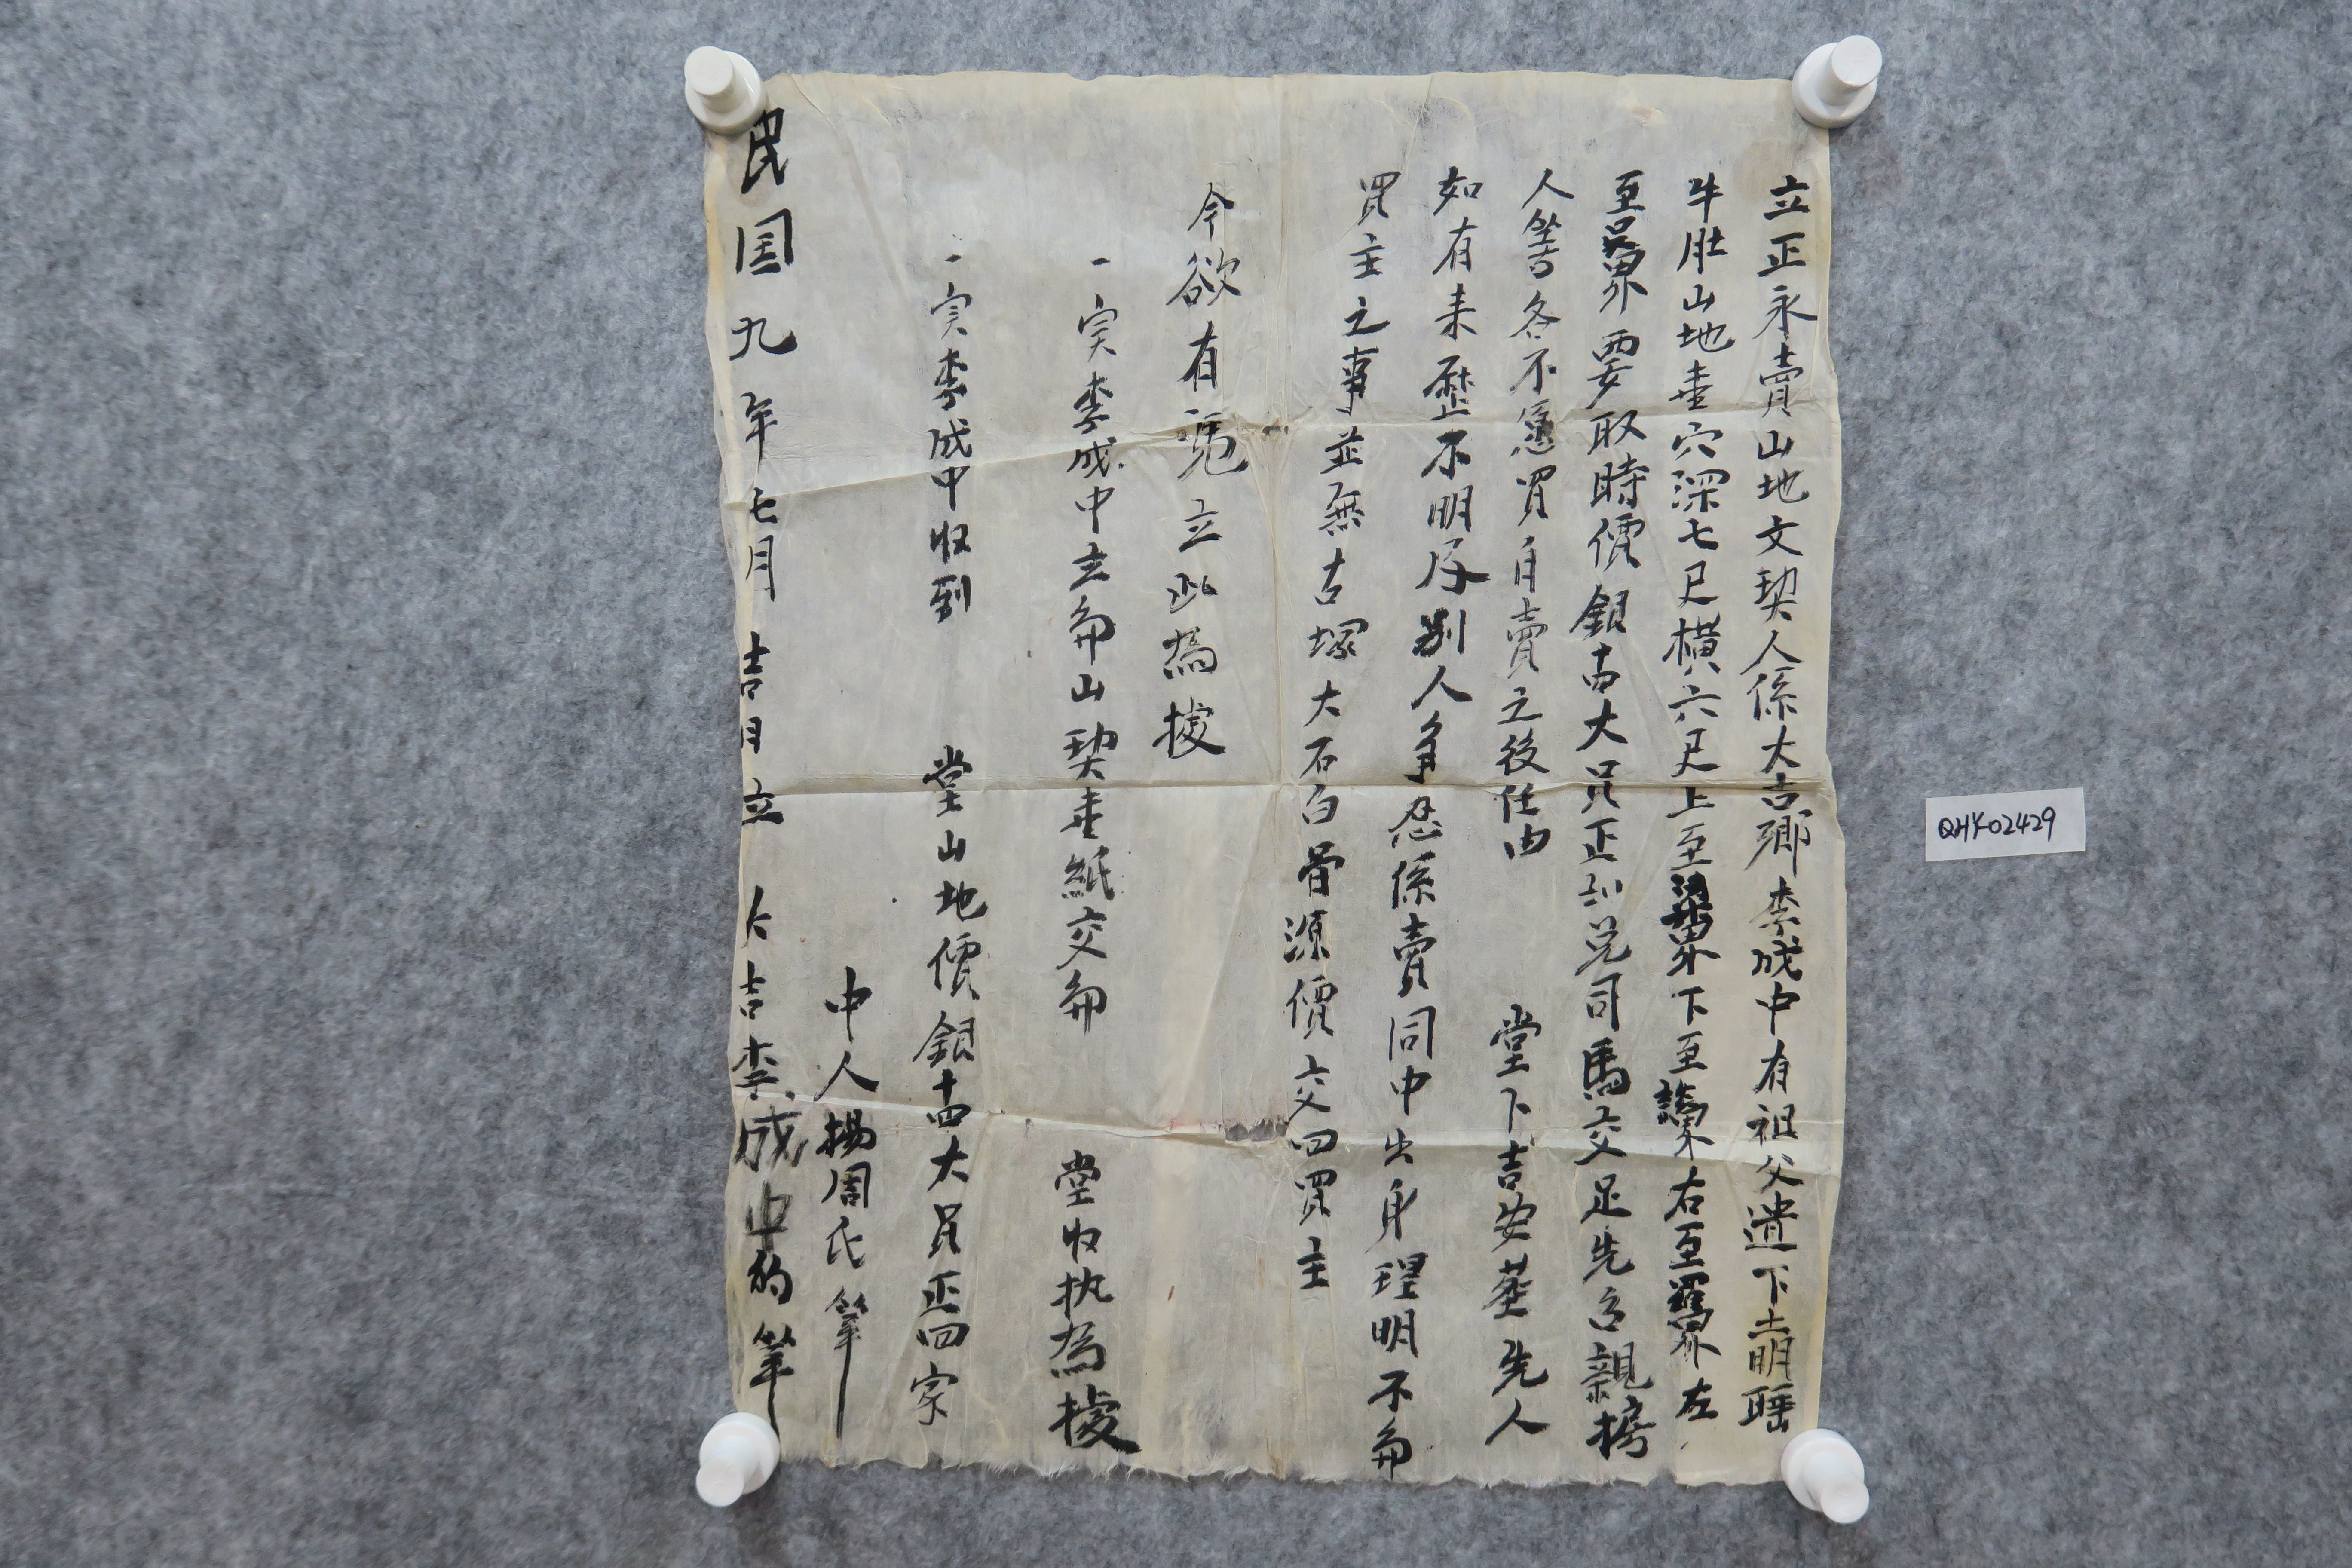 立正永賣山地文契人係大吉鄉李成中有祖父遺下土明𦖋
牛肚山地壹穴深七尺橫六尺上至界下至界右至界左
至界要取時價銀十四大員正司馬交足先召親
人等各不愿買自賣之後任由 堂下吉安塟先人
如有来歷不明及別人爭忍係賣同中出身理明不角
買主之事並無古塚大石白骨源價交回買主
今欲有凴立此為㨿
一寔李成中立角山契壹紙交角 堂收执為㨿
一寔李成中收到 堂山地價銀十四大員正四字
中人楊周氏筆
民国九年七月吉日立 大吉李成中的筆
QHY-02429